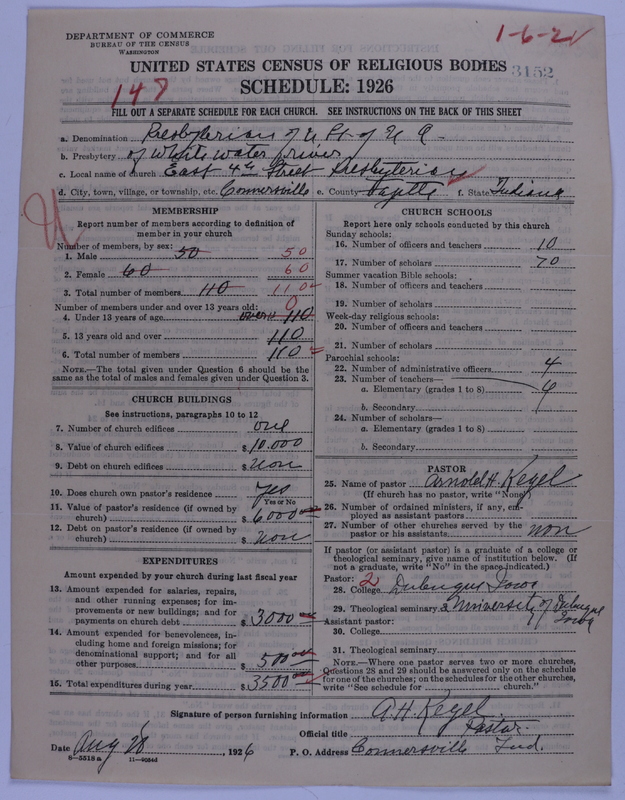 DEPARTMENT OF COMMERCE
BUREAU OF THE CENSUS
WASHINGTON
1-6-21
UNITED STATES CENSUS OF RELIGIOUS BODIES
3152
SCHEDULE: 1926
147
FILL OUT A SEPARATE SCHEDULE FOR EACH CHURCH. SEE INSTRUCTIONS ON THE BACK OF THIS SHEET
a. Denomination Presbyterian of U. St. of U A
b. Presbytery of White water river
c. Local name of church East 4th Street Presbyterian
d. City, town, village, or township, etc. Connersville e. County Fayette f. State Indiana
MEMBERSHIP
Report number of members according to definition of
member in your church
Number of members, by sex:
1. Male 50 50
2. Female 60 60
3. Total number of members 110 110
Number of members under and over 13 years old: 0
4. Under 13 years of age 110
5. 13 years old and over 110
6. Total number of members 110
NOTE.—The total given under Question 6 should be the
same as the total of males and females given under Question 3.
CHURCH BUILDINGS
See instructions, paragraphs 10 to 12
7. Number of church edifices one
8. Value of church edifices $10.000
9. Debt on church edifices $ non
10. Does church own pastor's residence yes
Yes or No
11. Value of pastor's residence (if owned by
church) $6000
12. Debt on pastor's residence (if owned by
church) $ non
EXPENDITURES
Amount expended by your church during last fiscal year
13. Amount expended for salaries, repairs,
and other running expenses; for im-
provements or new buildings; and for
payments on church debt $3000
14. Amount expended for benevolences, in-
cluding home and foreign missions; for
denominational support; and for all
other purposes $500
15. Total expenditures during year $3500
CHURCH SCHOOLS
Report here only schools conducted by this church
Sunday schools:
16. Number of officers and teachers 10
17. Number of scholars 70
Summer vacation Bible schools:
18. Number of officers and teachers
19. Number of scholars
Week-day religious schools:
20. Number of officers and teachers
21. Number of scholars
Parochial schools:
22. Number of administrative officers 4
23. Number of teachers—
a. Elementary (grades 1 to 8)
b. Secondary
24. Number of scholars—
a. Elementary (grades 1 to 8)
b. Secondary
PASTOR
25. Name of pastor Arnold H. Kegel
(If church has no pastor, write "None")
26. Number of ordained ministers, if any, em-
ployed as assistant pastors
27. Number of other churches served by the
pastor or his assistants non
If pastor (or assistant pastor) is a graduate of a college or
theological seminary, give name of institution below. (If
not a graduate, write "No" in the space indicated.)
Pastor: 2
28. College Dubuque Iowa
29. Theological seminary University of Dubuque
Iowa
Assistant pastor:
30. College
31. Theological seminary
NOTE.—Where one pastor serves two or more churches,
Questions 28 and 29 should be answered only on the schedule
for one of the churches; on the schedules for the other churches,
write "See schedule for church."
Signature of person furnishing information A. H. Kegel
Official title Pastor
Date Aug 28, 1926 P. O. Address Connersville Ind.
8—5518a 11—9864d